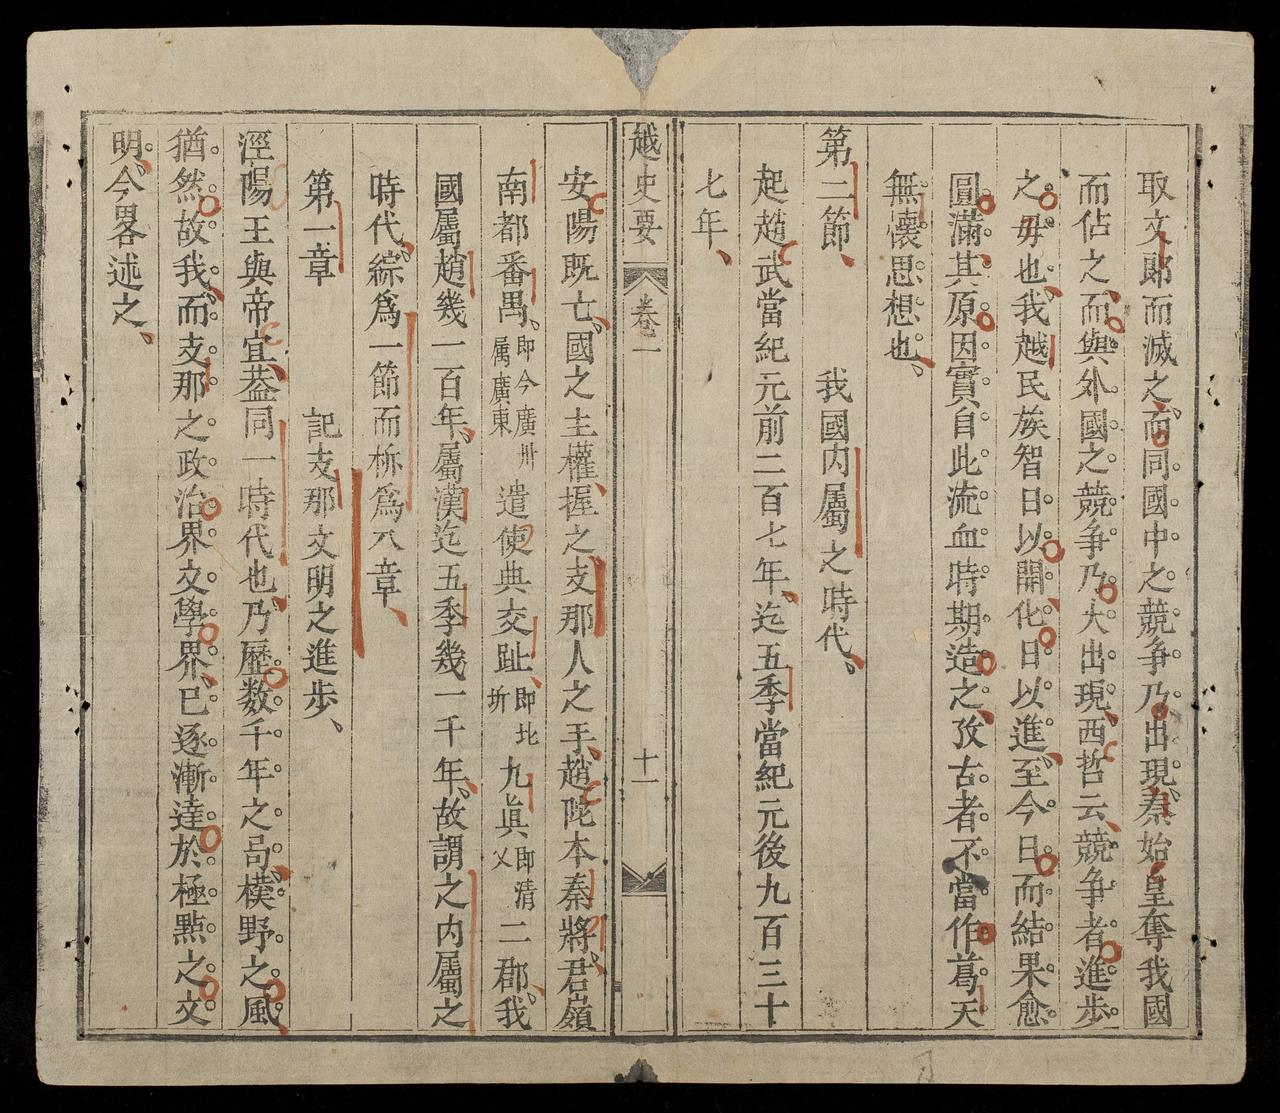 取文郎而滅之而同國中之競爭乃出現秦始皇奪我國
而佔之而與外國之競爭乃大出現西哲云競爭者進步
之母也我越民族智日以開化日以進至今日而結果愈
圓滿其原因實自此流血時期造之攷古者不當作葛天
無懷思想也
第二節 我國内屬之時代
起趙武當紀元前二百七年迄五季當紀元後九百三十
七年
越史要 卷一 十一
安陽既亡國之主權握之支那人之手趙陀本秦將君嶺
南都番禺即今廣州属廣東遣使典交趾即北圻九眞即清乂二郡我
國屬趙幾一百年屬漢迄五季幾一千年故謂之内屬之
時代綜爲一節而柝爲八章
第一章 記支那文明之進步
涇陽王與帝宜葢同一時代也乃歷数千年之咼樸野之風
猶然故我而支那之政治界文學界已逐漸達於極點之文
明今畧述之